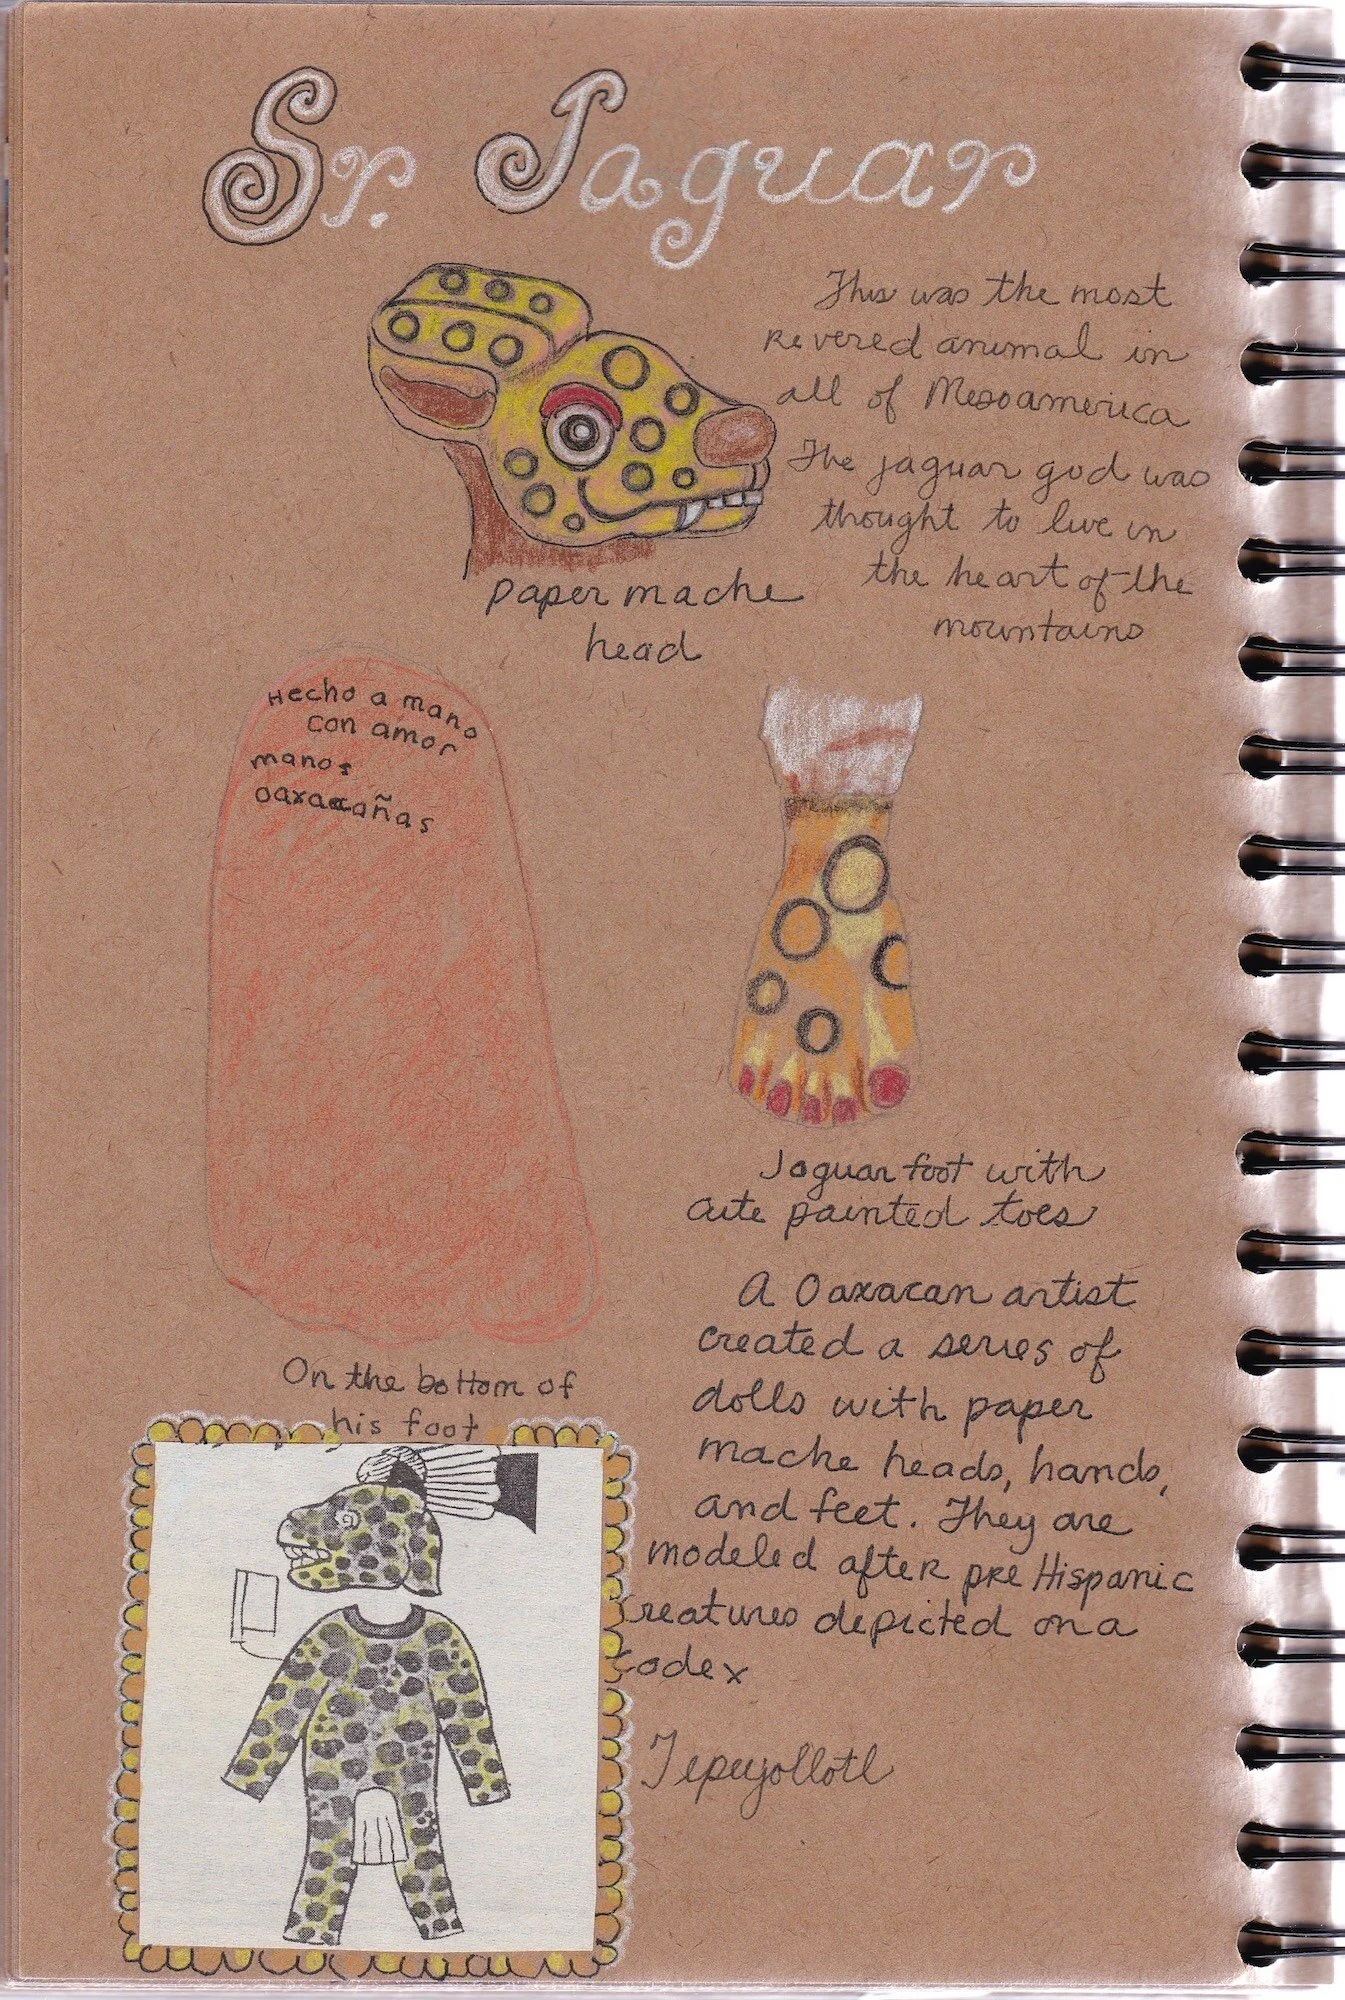 Sr. Jaguar
This was the most
revered animal in
all of Mesoamerica
The jaguar god was
thought to live in
the heart of the
mountains
paper mache
head
Hecho a mano
con amor
manos
oaxacañas
Jaguar foot with
cute painted toes
On the bottom of
his foot
A Oaxacan artist
created a series of
dolls with paper
mache heads, hands,
and feet. They are
modeled after pre Hispanic
creatures depicted on a
codex
Tepeyollotl